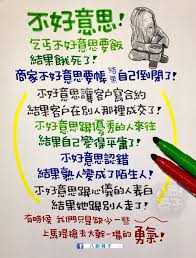 不好意思!
乞丐不好意思要飯
結果餓死了!
商家不好意思要帳 結果 自己倒閉了!
不好意思讓客戶寫合約
結果客戶在別人那裡成交了!
不好意思跟優秀的人來往
結果自己變得平庸了!
不好意思認錯
結果熟人變成了陌生人!
不好意思跟心儀的人表白
結果她跟別人走了!
有時候 我們只是缺少一些
上馬提槍去大幹一場的 勇氣!